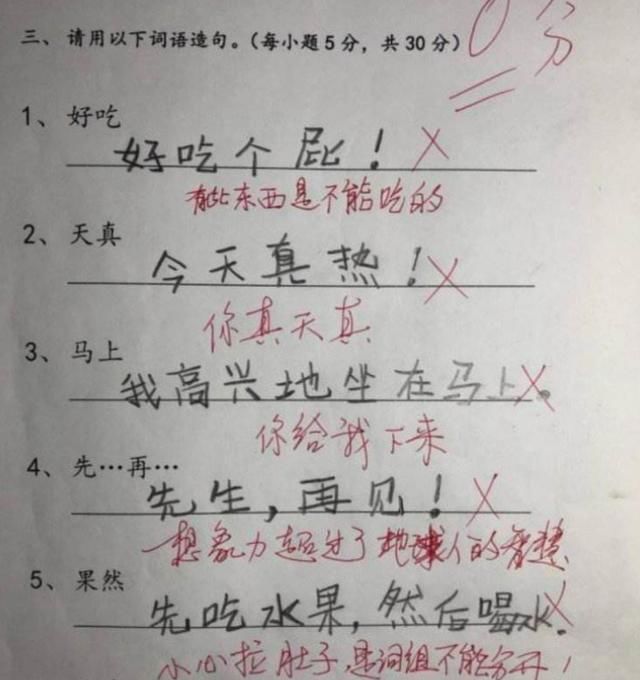 三、请用以下词语造句。（每小题5分，共30分）0分
1、好吃
好吃个屁！
有些东西是不能吃的
2、天真
今天真热！
你真天真
3、马上
我高兴地坐在马上。
你给我下来
4、先…再…
先生，再见！
想象力超过了地球人的智慧
5、果然
先吃水果，然后喝水。
小心拉肚子，是词组不能分开！